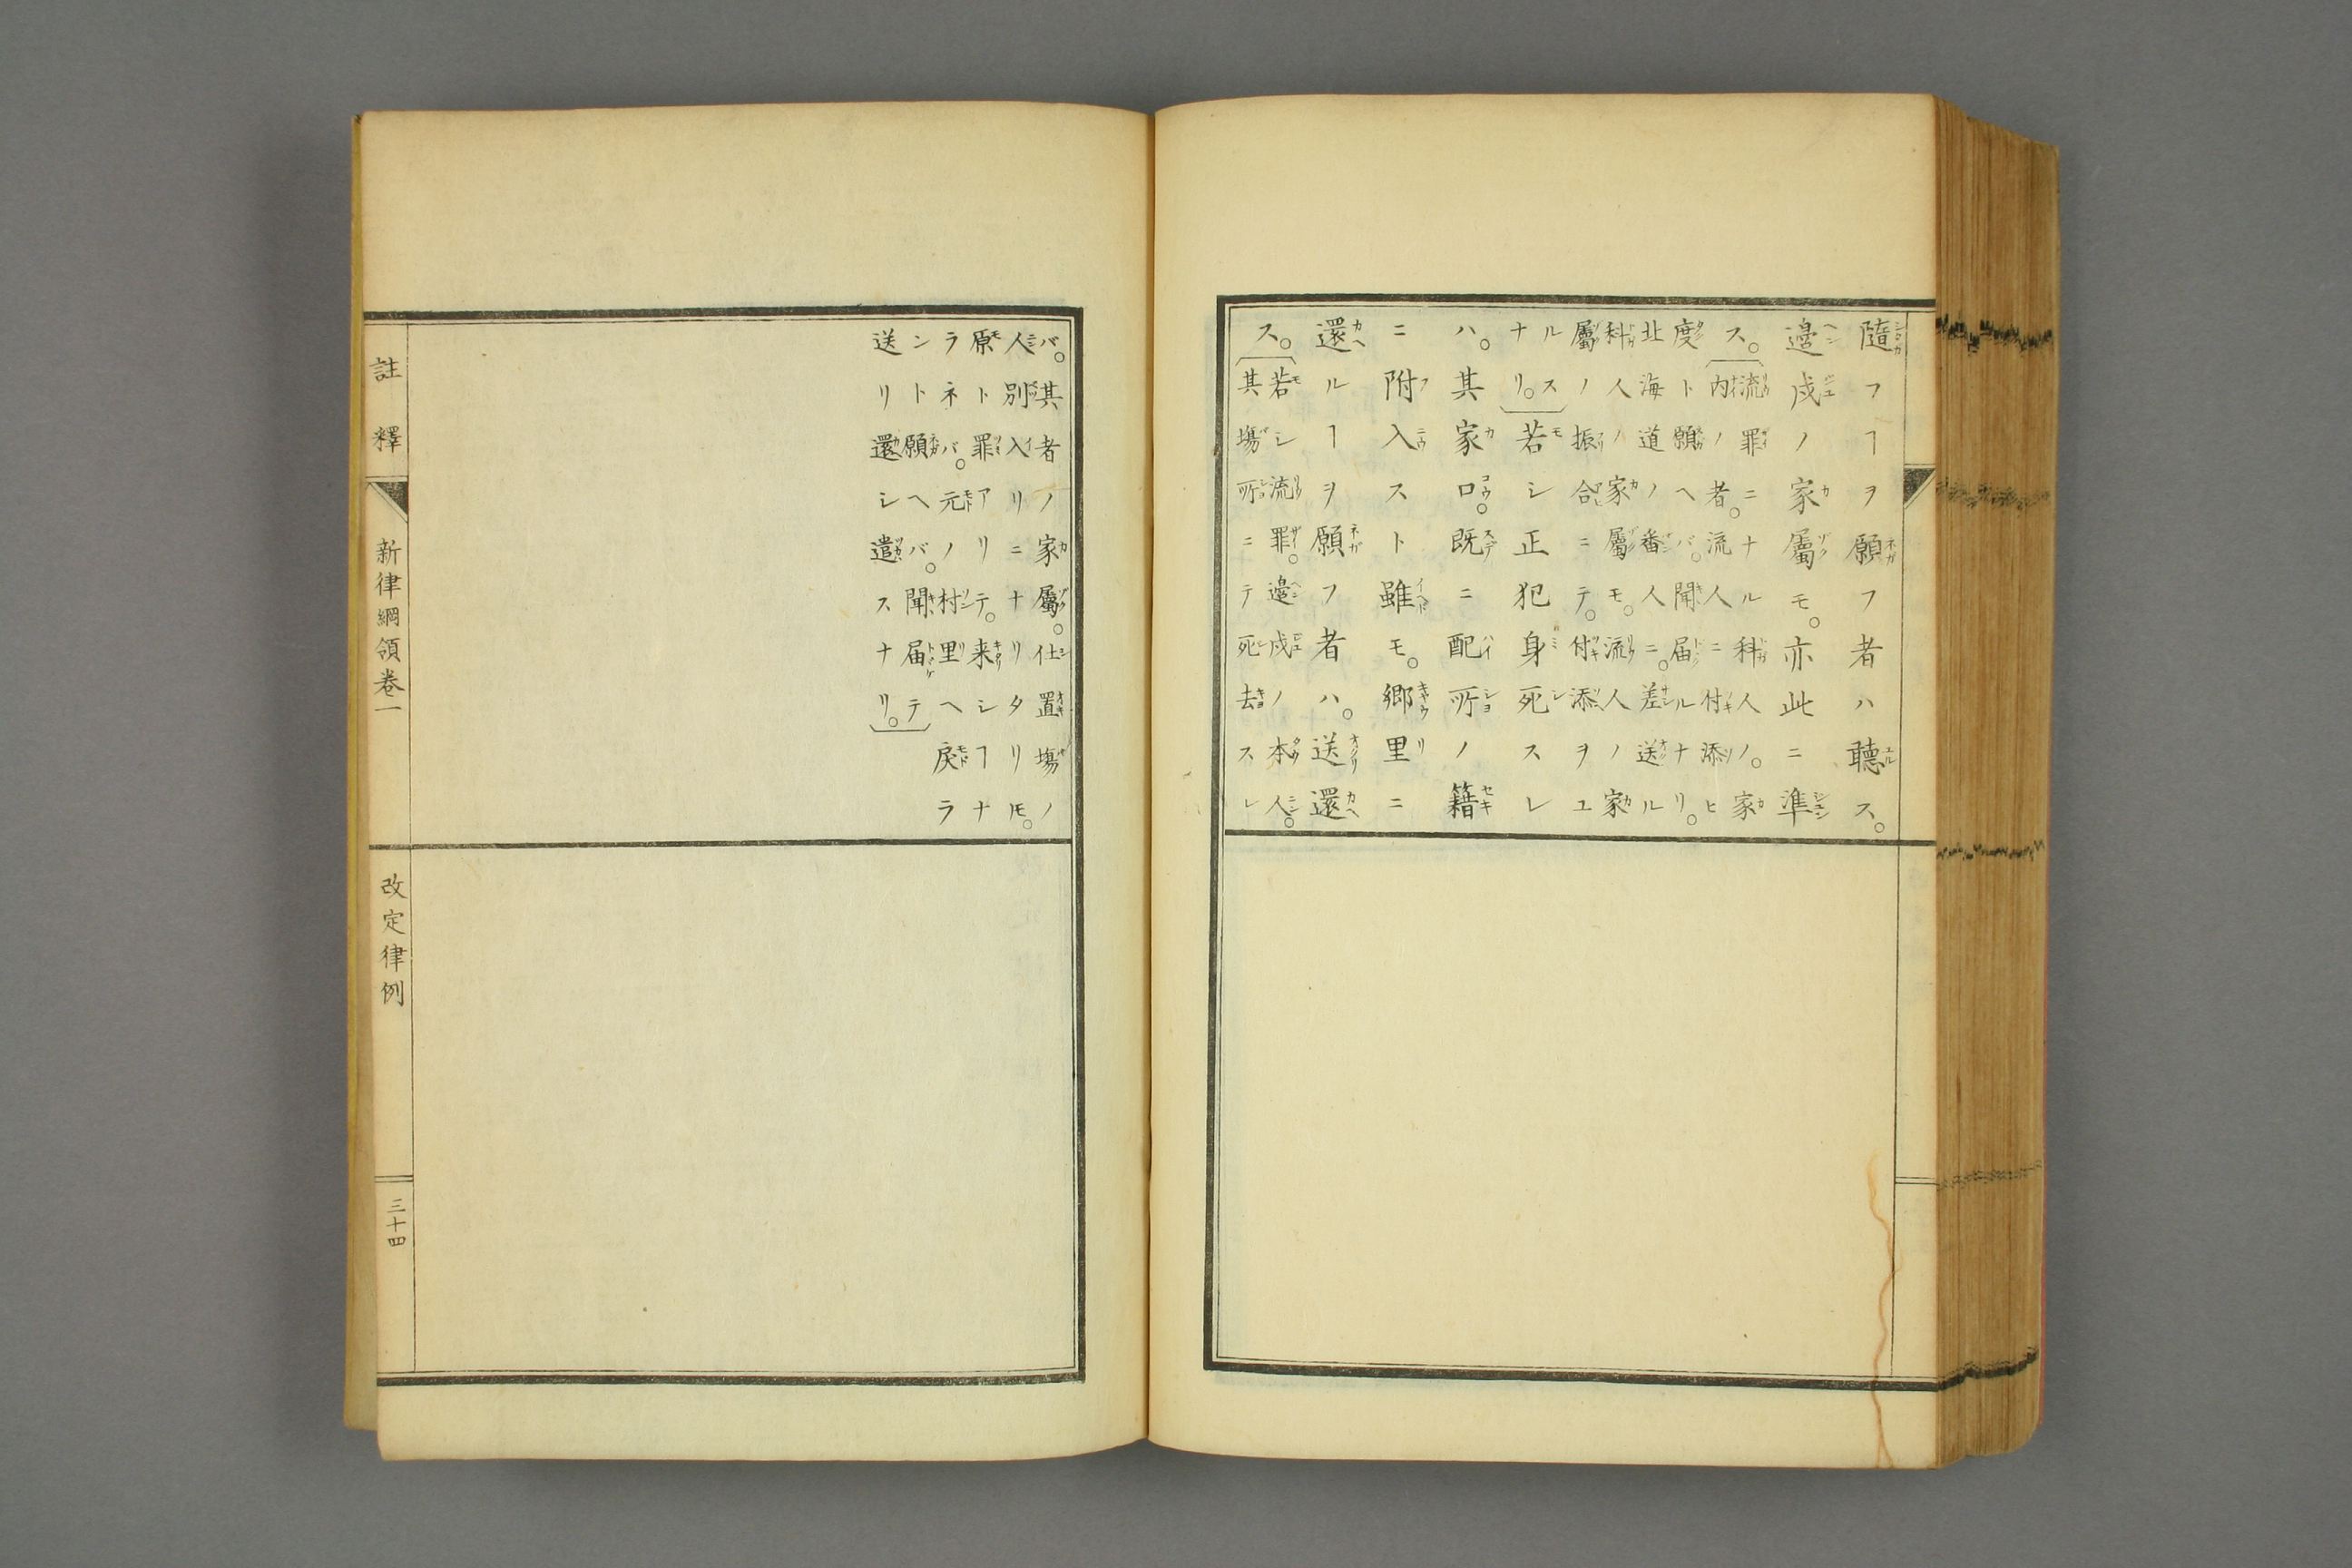 隨フヿヲ願フ者ハ聽ス。
邉戍ノ家屬モ。亦此ニ準
ス。
流罪ニナル科人ノ。家
内ノ者。流人ニ付添ヒ
度ト願ヘバ。聞届ルナリ。
北海道ノ番人ニ。差送ル
科人ノ家屬モ。流人ノ家
屬ノ振合ニテ。付添ヲユ
ルス
ナリ。
若シ正犯身死スレ
ハ。其家口。既ニ配所ノ籍
ニ附入スト雖モ。郷里ニ
還ルヿヲ願フ者ハ。送還
ス。
若シ流罪。邉戍ノ本人。
其塲所ニテ死去スレ
バ。其者ノ家屬。仕置塲ノ
人別入リニナリタリ𪜈。
原ト罪アリテ。来シヿナ
ラネバ。元ノ村里ヘ戻ラ
ント願ヘバ。聞届テ
送リ還シ遣スナリ。
註釋
新律綱領卷一
改定律例
三十四